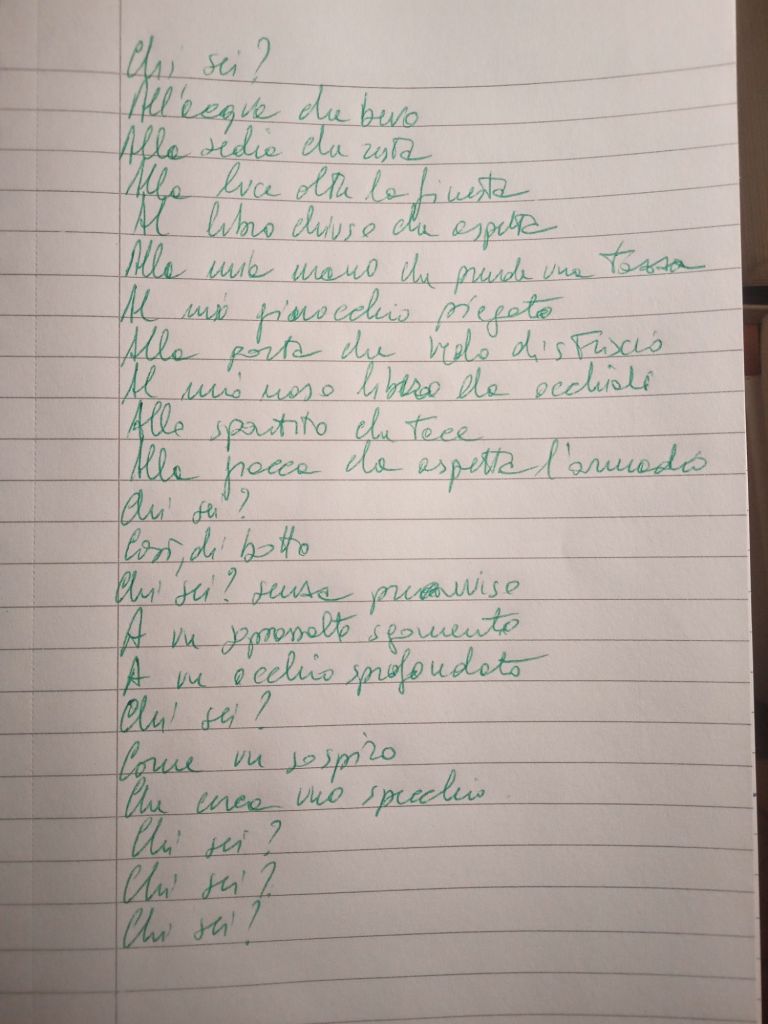 Chi sei?
All'acqua che bevo
Alla sedia che resta
Alla luce oltre la finestra
Al libro chiuso che aspetta
Alla mia mano che prende una tazza
Al mio ginocchio piegato
Alla porta che vedo di striscio
Al mio naso libero da occhiali
Allo spartito che tace
Alla giacca che aspetta l'armadio
Chi sei?
Così, di botto
Chi sei? senza preavviso
A un soprassalto sgomento
A un occhio sprofondato
Chi sei?
Come un sospiro
Che cerca uno specchio
Chi sei?
Chi sei?
Chi sei?